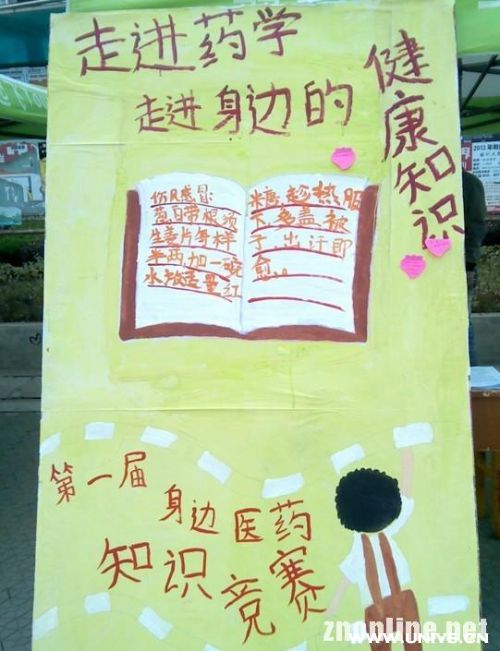 走进药学
走进身边的
健康知识
伤风感冒
葱白带根须
生姜片等样
半两加一碗
水放适量红
糖趁热服
下免盖被
子,出汗即
愈。
第一届
身边医药
知识竞赛
2013
znonline.net
WWW.UNIVS.CN